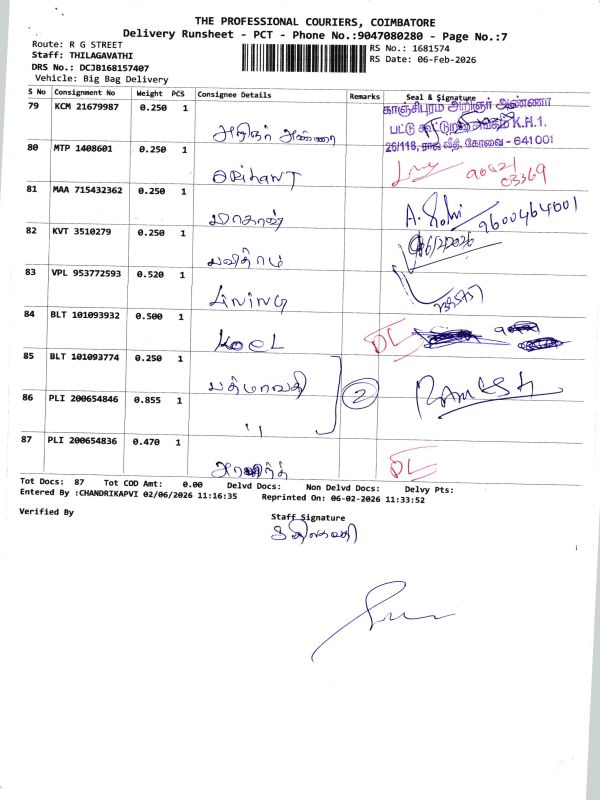 THE PROFESSIONAL COURIERS, COIMBATORE
Delivery Runsheet - PCT - Phone No.:9047080280 - Page No.:7
Route: R G STREET
RS No.: 1681574
Staff: THILAGAVATHI
RS Date: 06-Feb-2026
DRS No.: DCJB168157407
Vehicle: Big Bag Delivery
S No Consignment No Weight PCS Consignee Details Remarks Seal & Signature
காஞ்சிபுரம் அறிஞர் அண்ணா
பட்டு கூட்டுறவு சங்கம் K.H.1.
26/118, ராஜ வீதி, கோவை - 641001
79 KCM 21679987 0.250 1 அறிஞர் அண்ணா
80 MTP 1408601 0.250 1 ORihanT
81 MAA 715432362 0.250 1
A. 9600464001
82 KVT 3510279 0.250 1
06/2/2026
83 VPL 953772593 0.520 1
84 BLT 101093932 0.500 1 KOEL DL
85 BLT 101093774 0.250 1 பத்மாவதி
2 RAMESH
86 PLI 200654846 0.855 1 "
87 PLI 200654836 0.470 1 DL
Tot Docs: 87 Tot COD Amt: 0.00 Delvd Docs: Non Delvd Docs: Delvy Pts:
Entered By :CHANDRIKAPVI 02/06/2026 11:16:35 Reprinted On: 06-02-2026 11:33:52
Verified By
Staff Signature